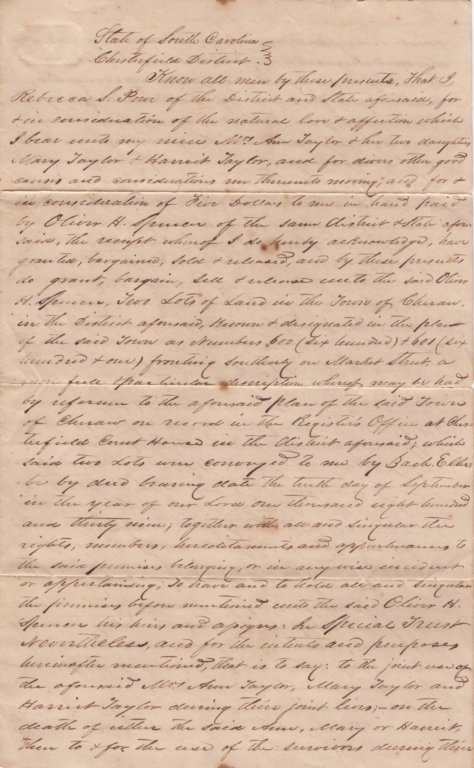 State of South Carolina
Chesterfield District.
Know all men by these presents, that I
Rebecca S. Powe of the District and State aforesaid, for
& in consideration of the natural love & affection which
I bear unto my niece Mrs Ann Taylor & her two daughters
Mary Taylor & Harriet Taylor, and for divers other good
causes and considerations me thereunto moving; and for &
in consideration of Five Dollars to me in hand paid
by Oliver H. Spencer of the same District & State afore-
said, the receipt whereof I do hereby acknowledge, have
granted, bargained, sold & released, and by these presents
do grant, bargain, sell & release unto the said Oliver
H. Spencer, Two Lots of Land in the Town of Cheraw
in the District aforesaid, known & designated in the plan
of the said Town as Numbers 600 (six hundred) & 601 (six
hundred & one) fronting southerly on Market Street. a
more full & particular description whereof may be had
by reference to the aforesaid plan of the said Town
of Cheraw on record in the Register's Office at Ches-
terfield Court House in the District aforesaid; which
said two Lots were conveyed to me by
be by deed bearing date the tenth day of September
in the year of our Lord one thousand eight hundred
and thirty nine; together with all and singular the
rights, members, hereditaments and appurtenances to
the said premises belonging, or in any wise incident
or appertaining; To have and to hold all and singular
the premises before mentioned unto the said Oliver H.
Spencer his heirs and assigns: In Special Trust
Nevertheless, and for the intents and purposes
hereinafter mentioned, that is to say: to the joint use of
the aforesaid Mrs Ann Taylor, Mary Taylor and
Harriet Taylor during their joint lives;- on the
death of either the said Ann, Mary or Harriet,
then to & for the use of the survivors during their